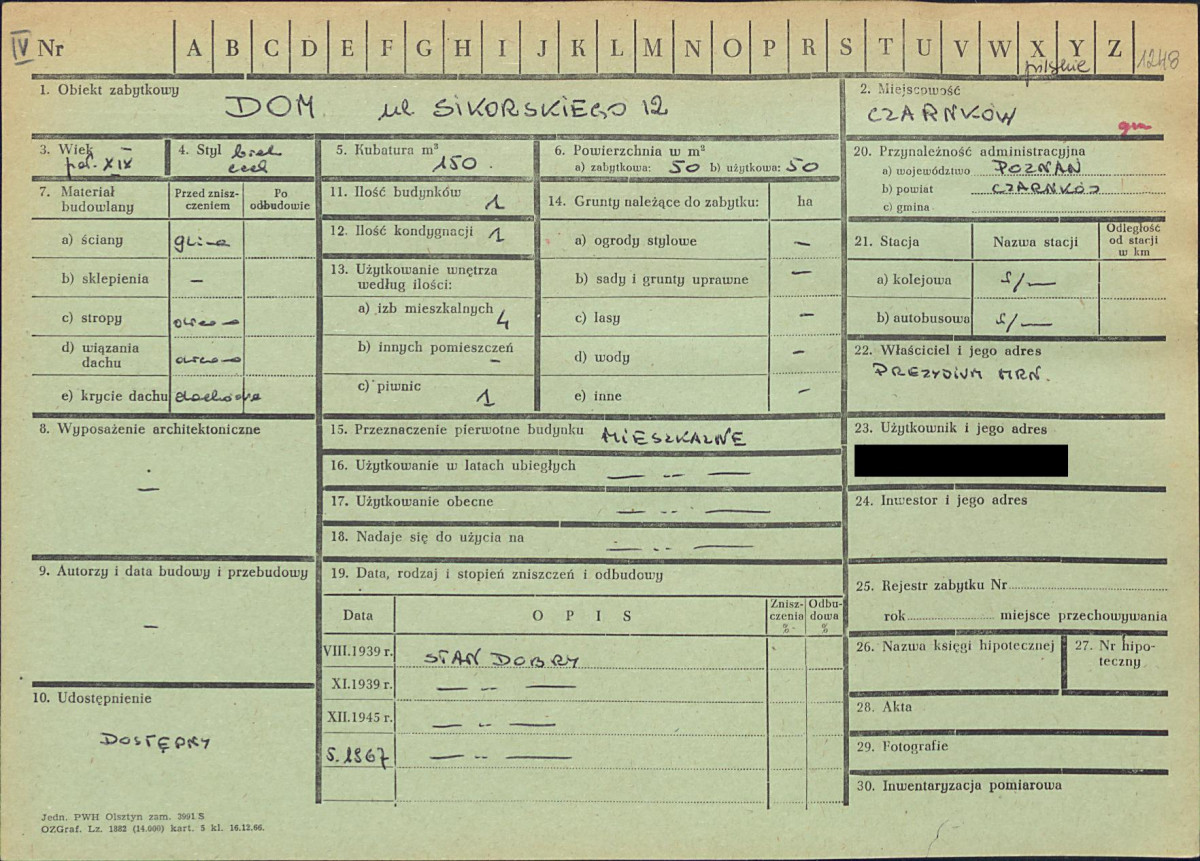 IV Nr A B C D E F G H I J K L M N O P R S T U V W X Y Z 1248
polskie
1. Obiekt zabytkowy
DOM ul SIKORSKIEGO 12
2. Miejscowość
CZARNKÓW
gm
3. Wiek
poł. XIX
4. Styl brak
cech
5. Kubatura m³
150
6. Powierzchnia w m²
a) zabytkowa: 50 b) użytkowa: 50
7. Materiał budowlany
Przed zniszczeniem
Po odbudowie
a) ściany glina
b) sklepienia —
c) stropy drewno
d) wiązania dachu drewno
e) krycie dachu dachówka
8. Wyposażenie architektoniczne
—
9. Autorzy i data budowy i przebudowy
—
10. Udostępnienie
DOSTĘPNY
11. Ilość budynków 1
12. Ilość kondygnacji 1
13. Użytkowanie wnętrza
według ilości:
a) izb mieszkalnych 4
b) innych pomieszczeń —
c) piwnic 1
14. Grunty należące do zabytku: ha
a) ogrody stylowe —
b) sady i grunty uprawne —
c) lasy —
d) wody —
e) inne —
15. Przeznaczenie pierwotne budynku MIESZKALNE
16. Użytkowanie w latach ubiegłych — .. —
17. Użytkowanie obecne — .. —
18. Nadaje się do użycia na — .. —
19. Data, rodzaj i stopień zniszczeń i odbudowy
Data OPIS Zniszczenia % Odbudowa %
VIII.1939 r. STAN DOBRY
XI.1939 r. — .. —
XII.1945 r. — .. —
5.1967 — .. —
20. Przynależność administracyjna
a) województwo POZNAŃ
b) powiat CZARNKÓW
c) gmina
21. Stacja Nazwa stacji Odległość od stacji w km
a) kolejowa s/—
b) autobusowa s/—
22. Właściciel i jego adres
PREZYDIUM MRN.
23. Użytkownik i jego adres
24. Inwestor i jego adres
25. Rejestr zabytku Nr
rok miejsce przechowywania
26. Nazwa księgi hipotecznej
27. Nr hipoteczny
28. Akta
29. Fotografie
30. Inwentaryzacja pomiarowa
Jedn. PWH Olsztyn zam. 3991 S
OZGraf. Lz. 1882 (14.000) kart. 5 kl. 16.12.66.